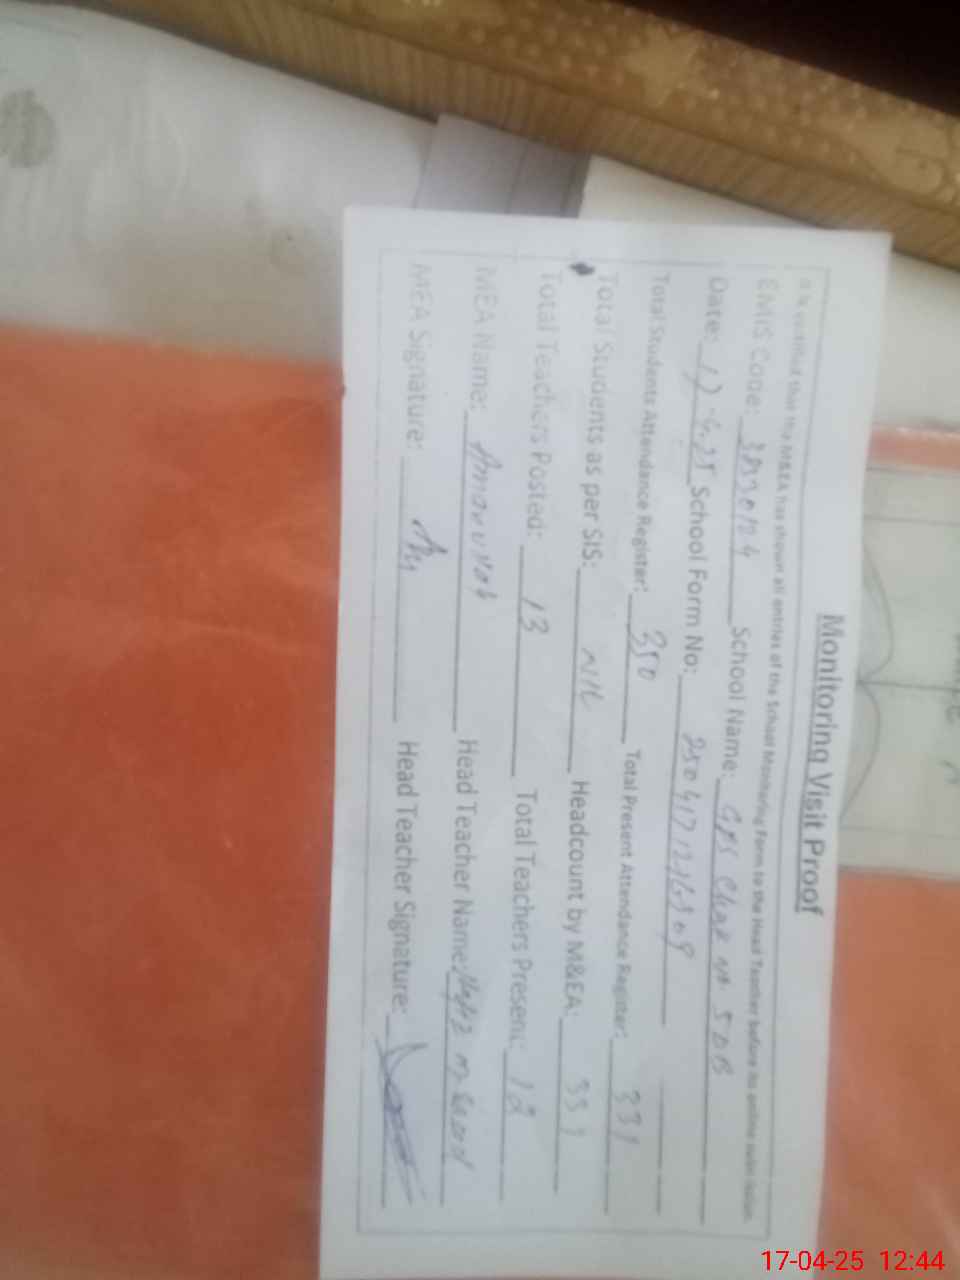 Monitoring Visit Proof
It is certified that the M&EA has shown all entries of the School Monitoring Form to the Head Teacher before its online submission.
EMIS Code: School Name: GPS Chak no 5DB
Date: 17-4-25 School Form No:
Total Students Attendance Register: 350 Total Present Attendance Register: 331
Total Students as per SIS: NIL Headcount by M&EA: 331
Total Teachers Posted: 13 Total Teachers Present: 12
MEA Name: Head Teacher Name:
MEA Signature: Head Teacher Signature:
17-04-25 12:44